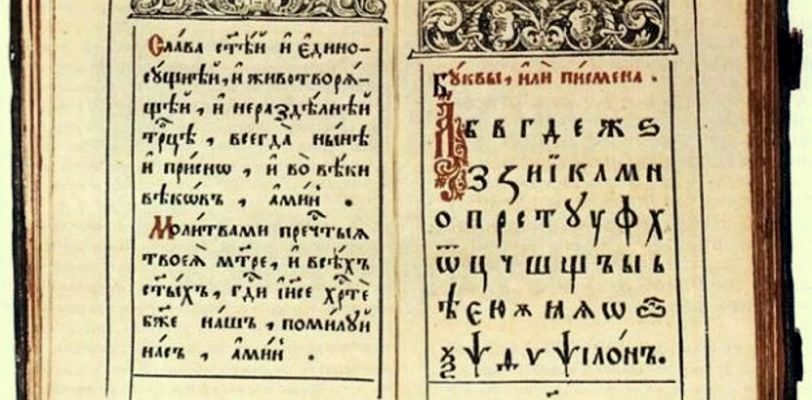 Сла́ва ст҃ѣ́й и҆ є҆дино-
су́щнѣй, и҆ животворѧ́-
щей, и҆ нераздѣ́лнѣй
трⷪ҇цѣ, всегда̀ ны́нѣ
и҆ при́снѡ, и҆ во̀ вѣ́ки
вѣкѡ́въ, а҆ми́нь.
Моли́твами пречⷭ҇тыѧ
твоеѧ̀ мт҃ре, и҆ всѣ́хъ
ст҃ы́хъ, гдⷭ҇и і҆и҃се хрⷭ҇тѐ
бж҃е на́шъ, поми́луй
на́съ, а҆ми́нь.
Бу́квы, и҆лѝ пи́смена.
А б в г д е ж ѕ
З ӡ и ї к л м н
о п р с т ꙋ у ф х
ѿ ц ч ш щ ъ ы ь
ѣ є ю ѫ ꙗ ѧ ѡ
ѯ ѱ д ѵ ѱіло́нъ.